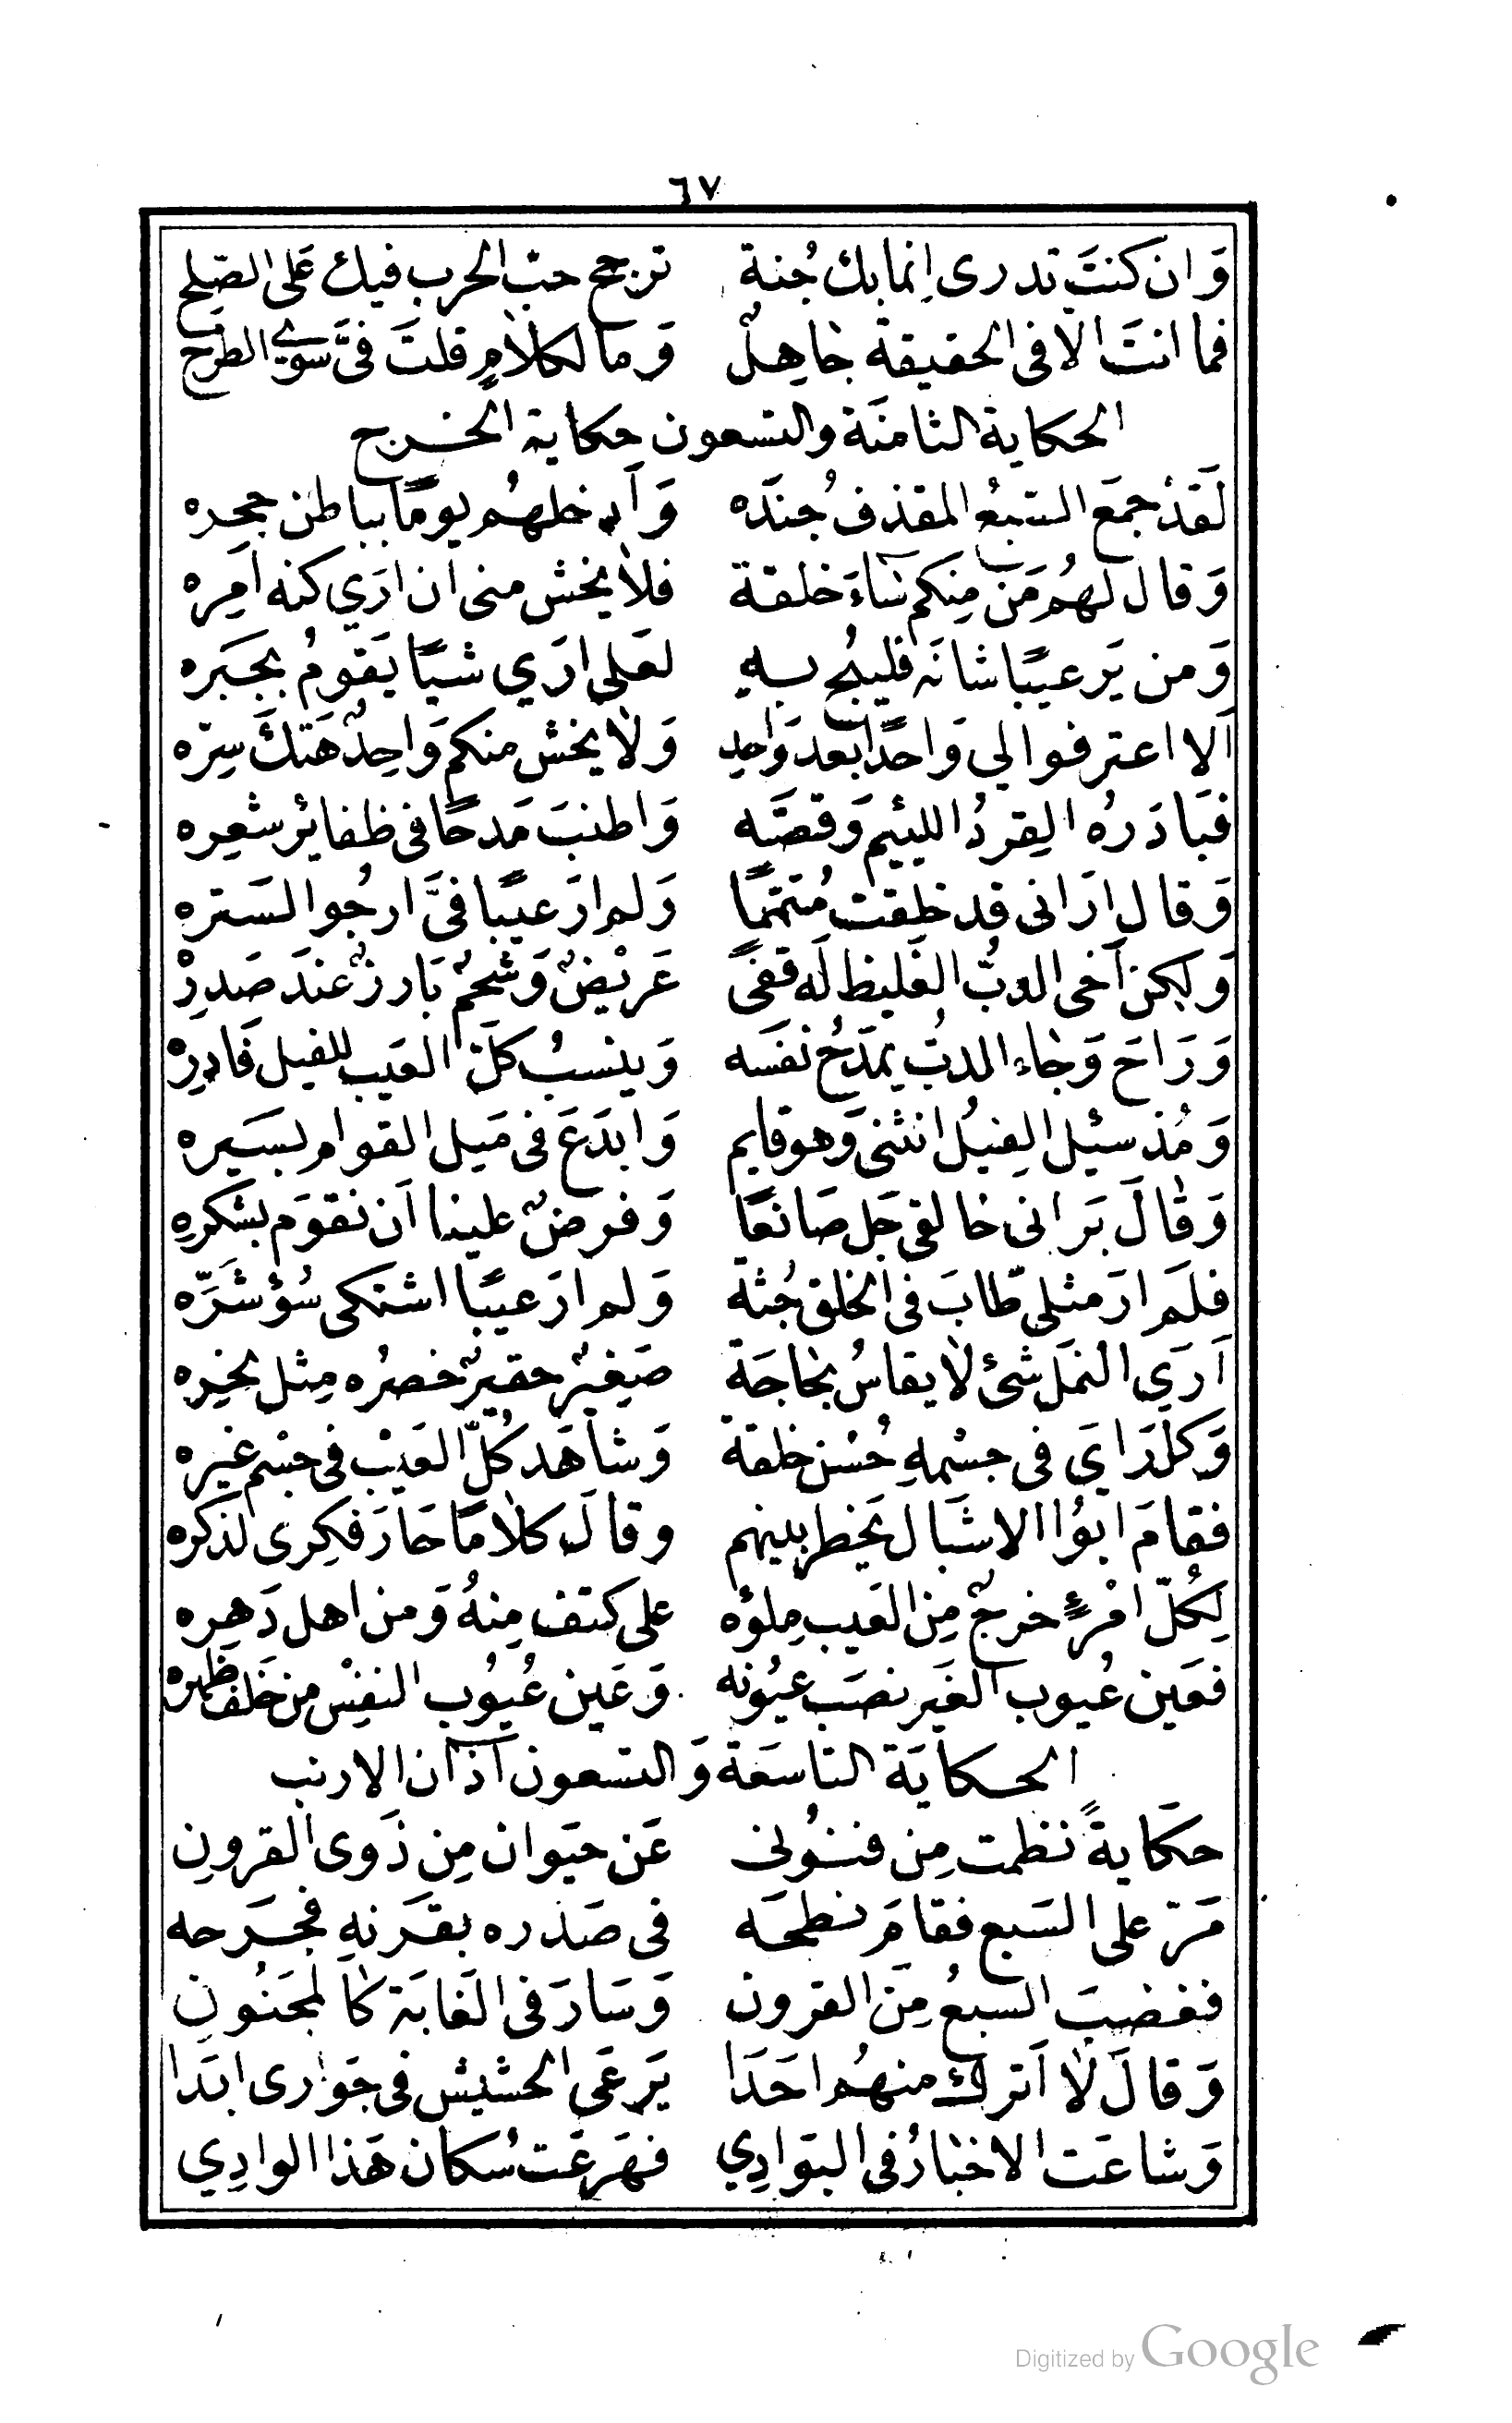 ٦٧
وَان كنتَ تدرى اِنما بك جُنة ترجح حبّ الحرب فيك عَلى الصّلح
فما انتَ الا فى الحقيقة جَاهِلٌ وَما لكلامٍ قلتَ فىَّ سوَى الطرح
الحكاية الثامنَة والتسعون حِكاية الخرج
لَقدْ جمعَ السَّبعُ المقذف جُندَه وَأدخلهُم يومًا بباطن جحره
وَقال لهُم مَن مِنكم سَاءَ خلقة فلا يخش منى ان ارَي كنه امِره
وَمن يَر عيبًا شانَه فليبُح بِهِ لعَلى ارَي شيًا يَقومُ بجَبَره
اَلا اعترفوا لي وَاحدًا بعد وَاحِدٍ وَلا يخش منكم وَاحِدٌ هَتكَ سِرّه
فبَادَرهُ القِردُ اللئيم وَقصَّه وَاطنبَ مَدحًا فى ظفائر شعِره
وَقال ارَانى قد خلِقت مُتمّمًا وَلم ارَ عيبًا فىَّ ارجُو السَتره
وَلكِن اَخى الدبُّ الغَليظ لَه قفىً عَريْضٌ وَشحْمٌ بَارزٌ عندَ صَدرِهْ
وَرَاحَ وَجَاء الدبُّ يمدَحُ نفسَه وَينسبُ كلَّ العَيب للفيل فَادرِهْ
وَمُذ سئيل الفيلُ انثنى وَهو قايم وَابدَعَ فى مَيل القوام بسَيره
وَقالَ بَرَانى خالقى جَل صَانعًا وَفرضٌ علينا اَن نقوَم بشكرِهِ
فلَم ارَ مثلى طابَ فى الخلق جُثة وَلم ارَ عيبًا اشتكى سُوُ شَرّه
اَرَي النمَل شئ لا يقاسُ بحَاجَة صَغِيرٌ حقيرٌ خصرُه مِثل نحِره
وَكل رَاىَ فى جسْمهِ حُسْن خلقة وَشاهَد كُلّ العَيْب فى جسْم غيره
فقامَ ابوُا الاشبَال يَخطر بينهم وقالَ كلامًا حَارَ فكِرى لذكره
لِكُلّ امْرءٍ خرجٌ مِن العَيب مِلؤه على كتف مِنهُ وَمن اهل دَهِره
فعَين عُيوب الغَير نصَب عيُونه وَعَين عُيُوب النفِسْ من خَلف ظهره
الحكايَة التاسعَة وَالتسعون آذان الارنب
حكَايةً نظمت مِن فنوُنى عَن حيَوان مِن ذَوى القرونِ
مَرّ على السَبع فقامَ نطحَه فى صَدره بقَرنهِ فجَرَحه
فغضبَ السبعُ مِنَ القرون وَسَارَ فى الغابَة كَالمجَنُونِ
وَقالَ لا اَترك منهُم احَدَا يَرعَى الحشيش فى جَوَارى ابَدَا
وَشاعَت الاخبَارُ فى البَوَادِي فهَرعَت سُكان هَذا الوادِي
Digitized by Google